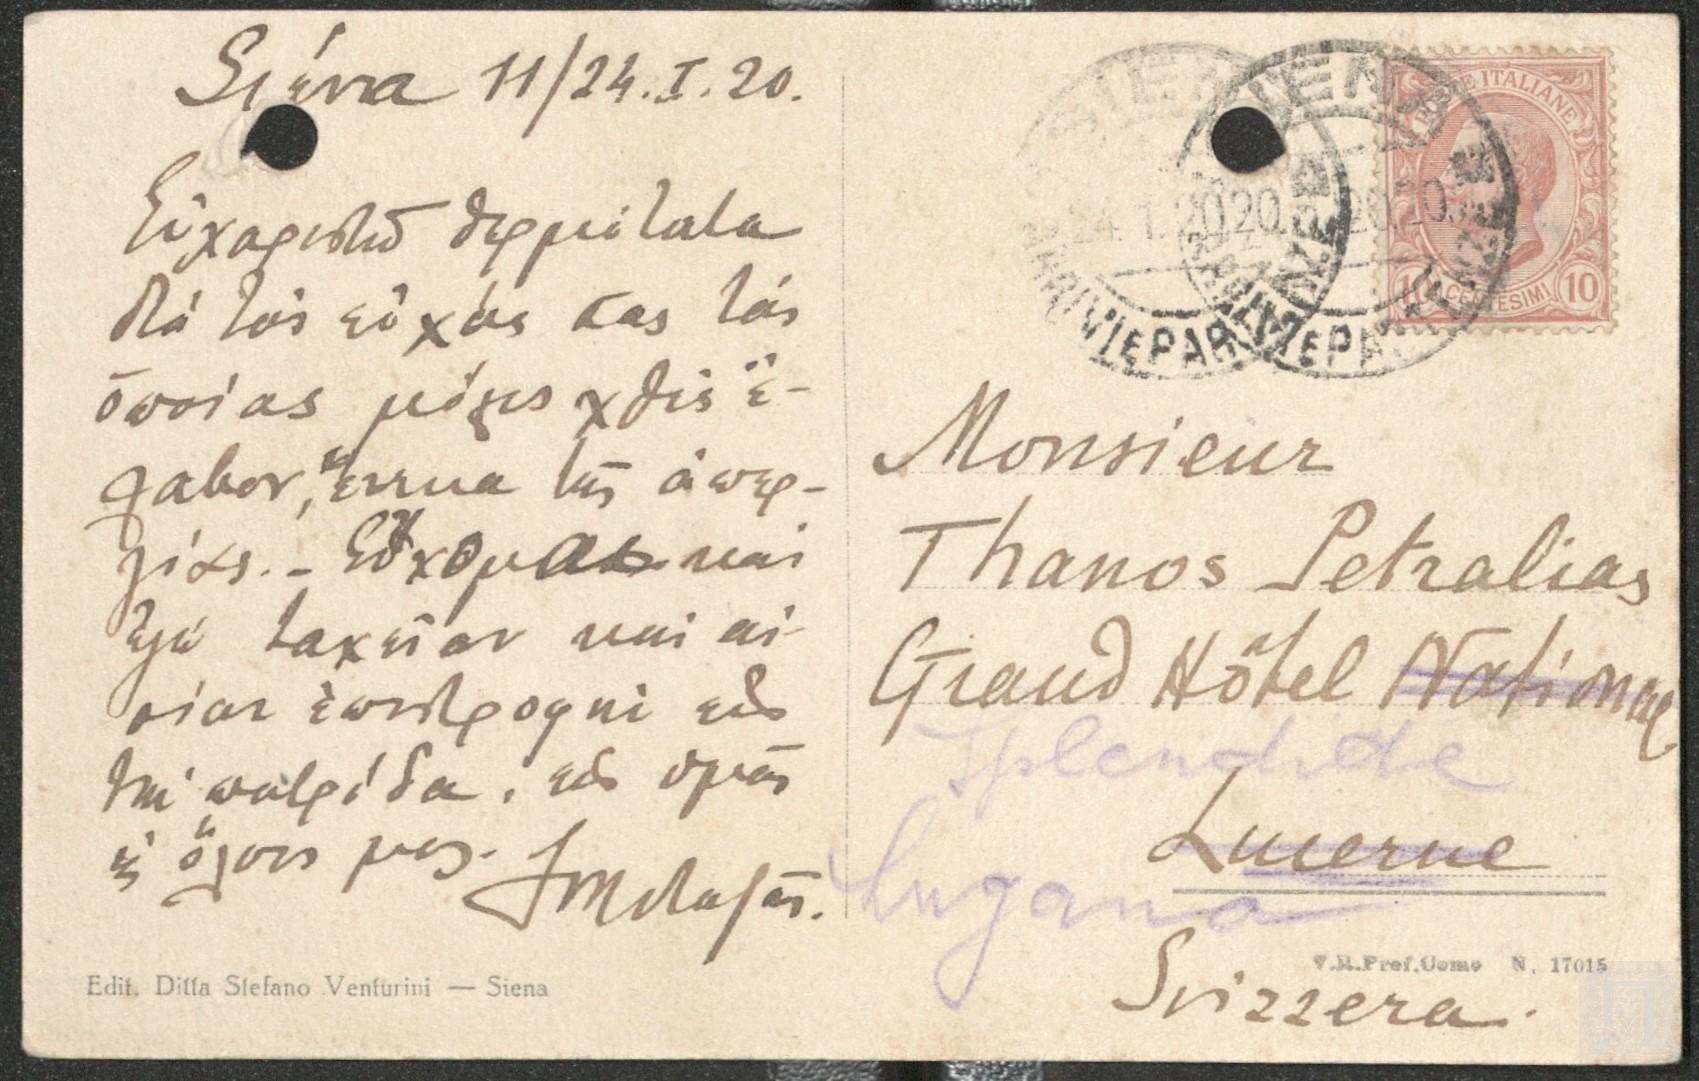 Σιένα 11/24.I.20.
Εὐχαριστῶ θερμότατα
διὰ τὰς εὐχάς σας τὰς
ὁποίας μόλις χθὲς ἔ-
λαβον, ἕνεκα τῆς ἀπερ-
γίας. - Εὔχομαι καὶ
ἐγὼ ταχεῖαν καὶ αἰ-
σίαν ἐπιστροφὴν εἰς
τὴν πατρίδα, εἰς ὑμᾶς
κι ὅλους μας.
Edit. Ditta Stefano Venturini — Siena
SIENA
24.1.20 20
ARRIVI E PARTENZE
SIENA
ARRIVI E PARTENZE
POSTE ITALIANE
10 CENTESIMI 10
Monsieur
Thanos Petralias
Grand Hôtel National
Splendide
Lucerne
Lugano
V.R.Pref.Como N. 17015
Svizzera.